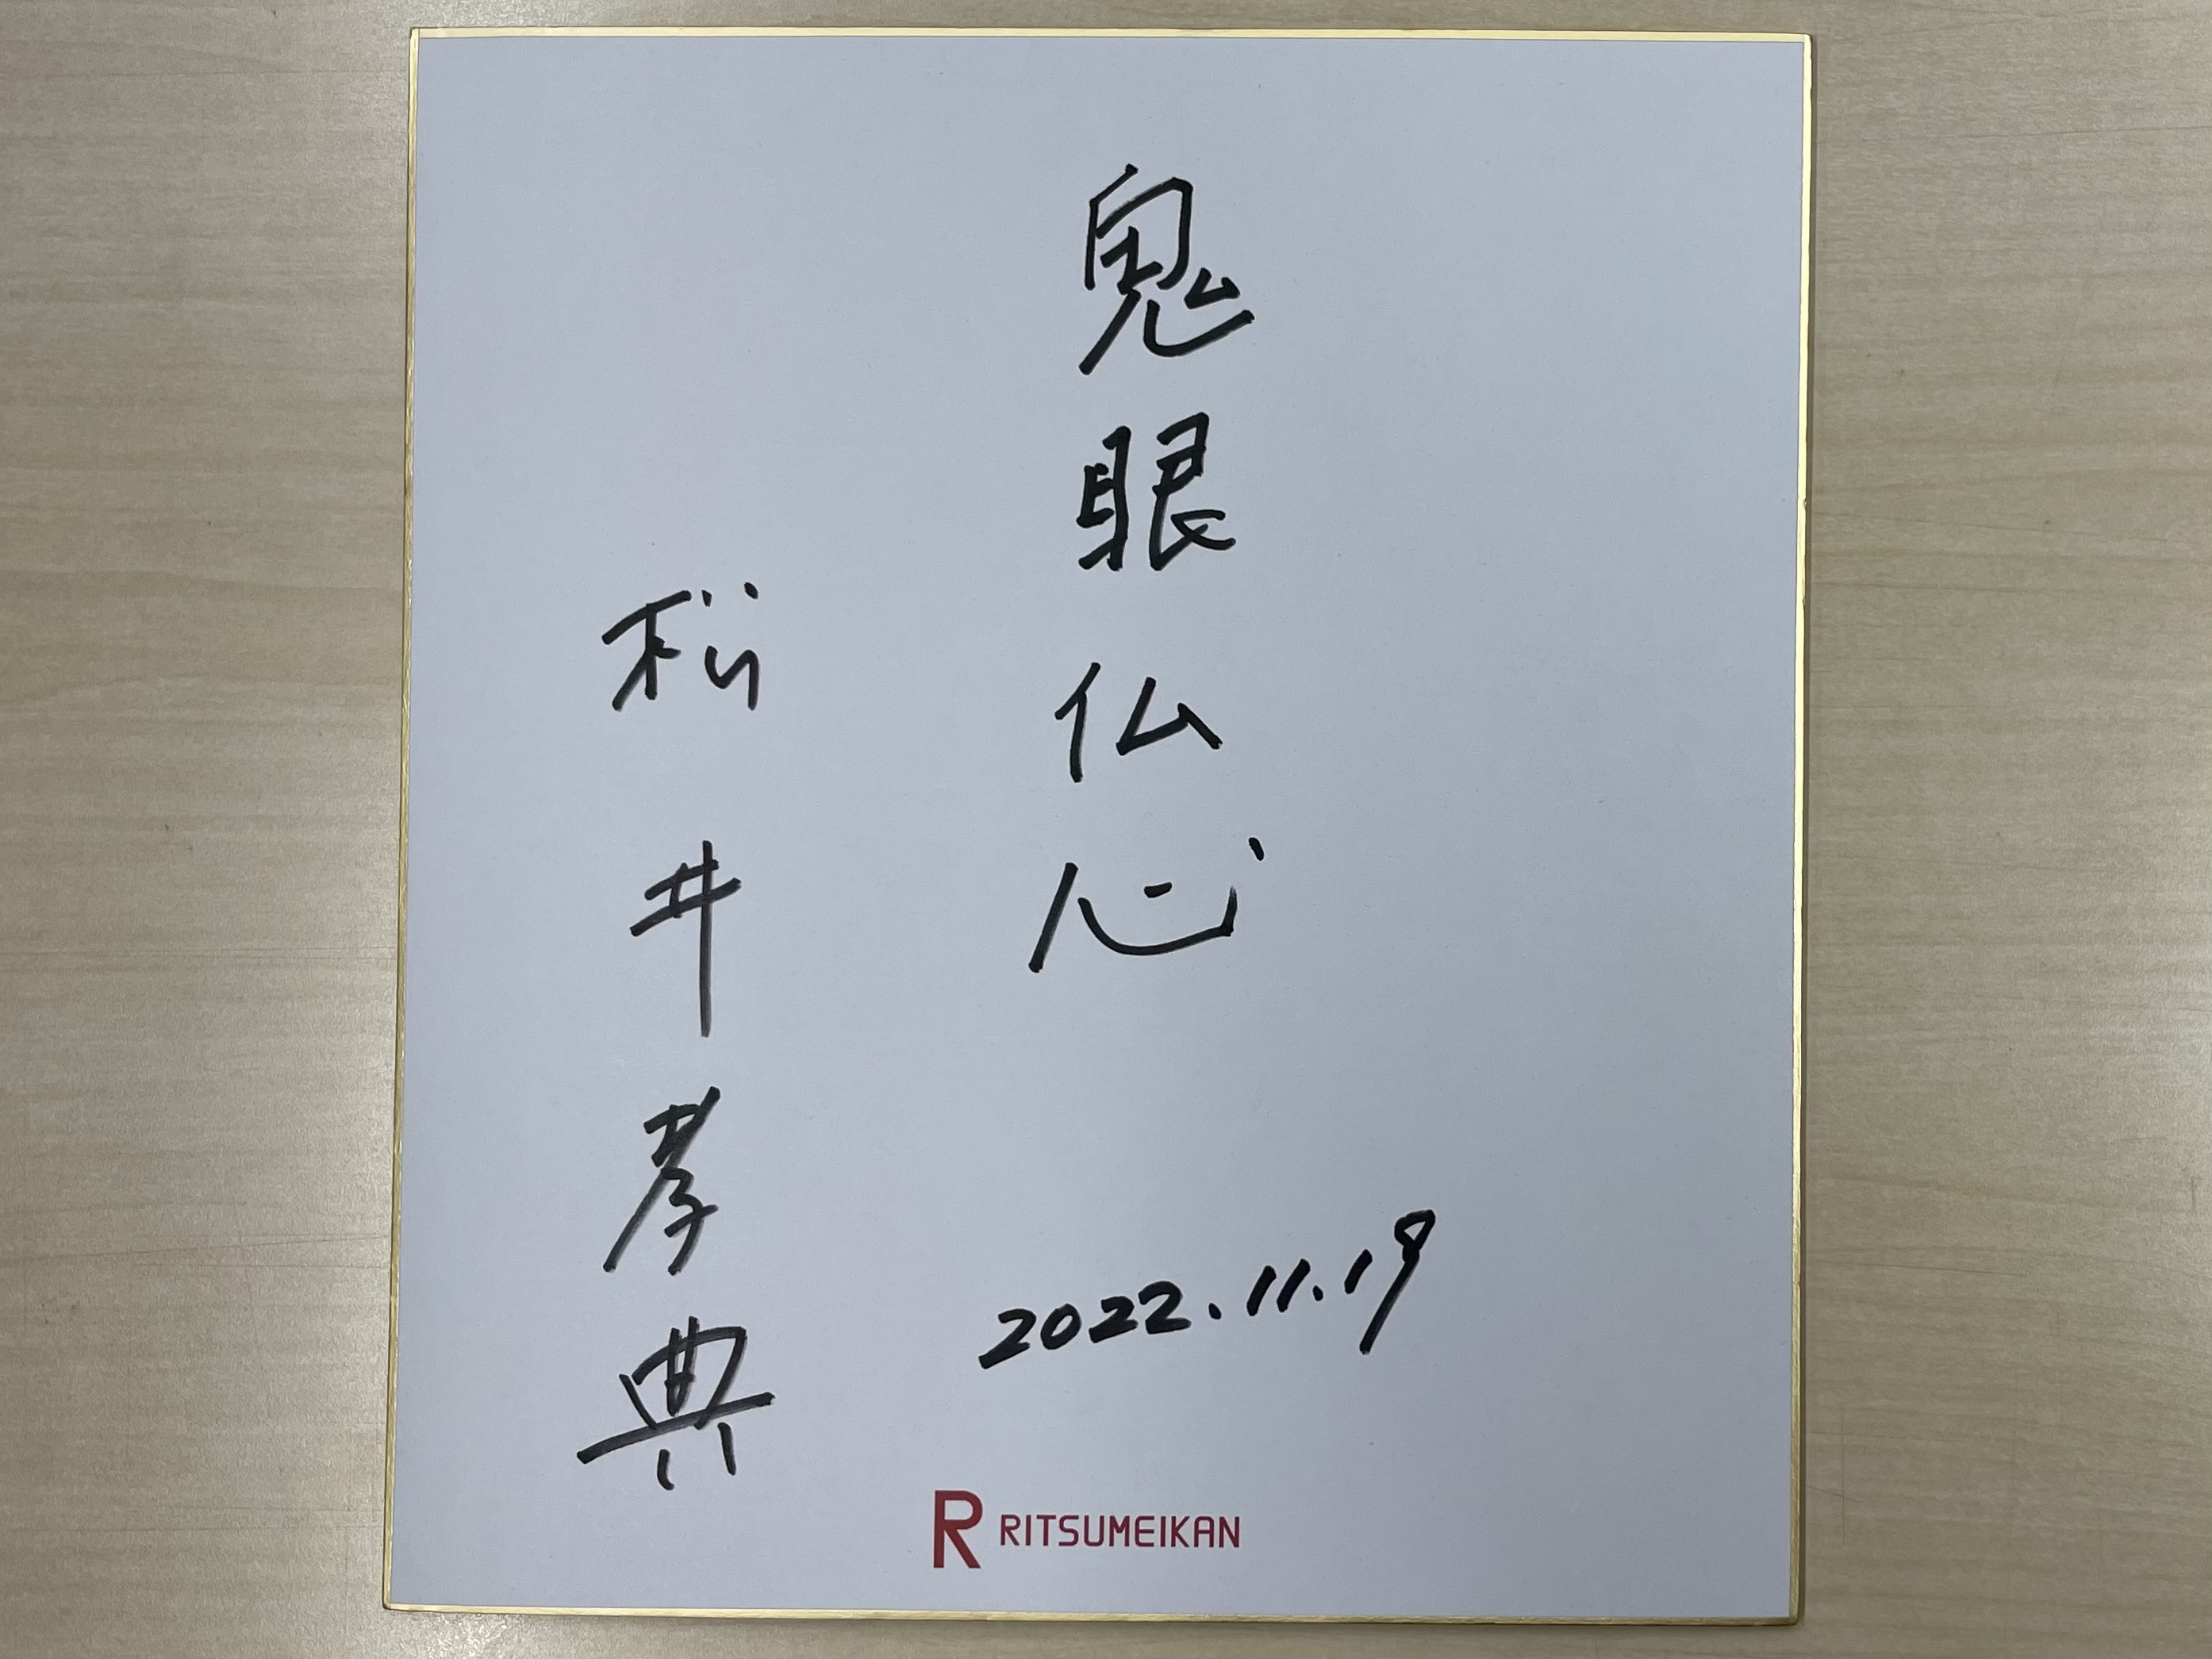 鬼眼仏心
松井孝典
2022.11.19
R RITSUMEIKAN